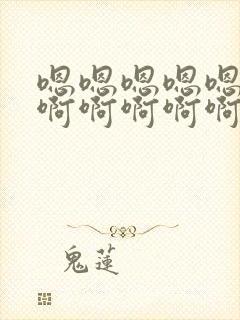 嗯嗯嗯嗯嗯
啊啊啊啊啊
鬼莲